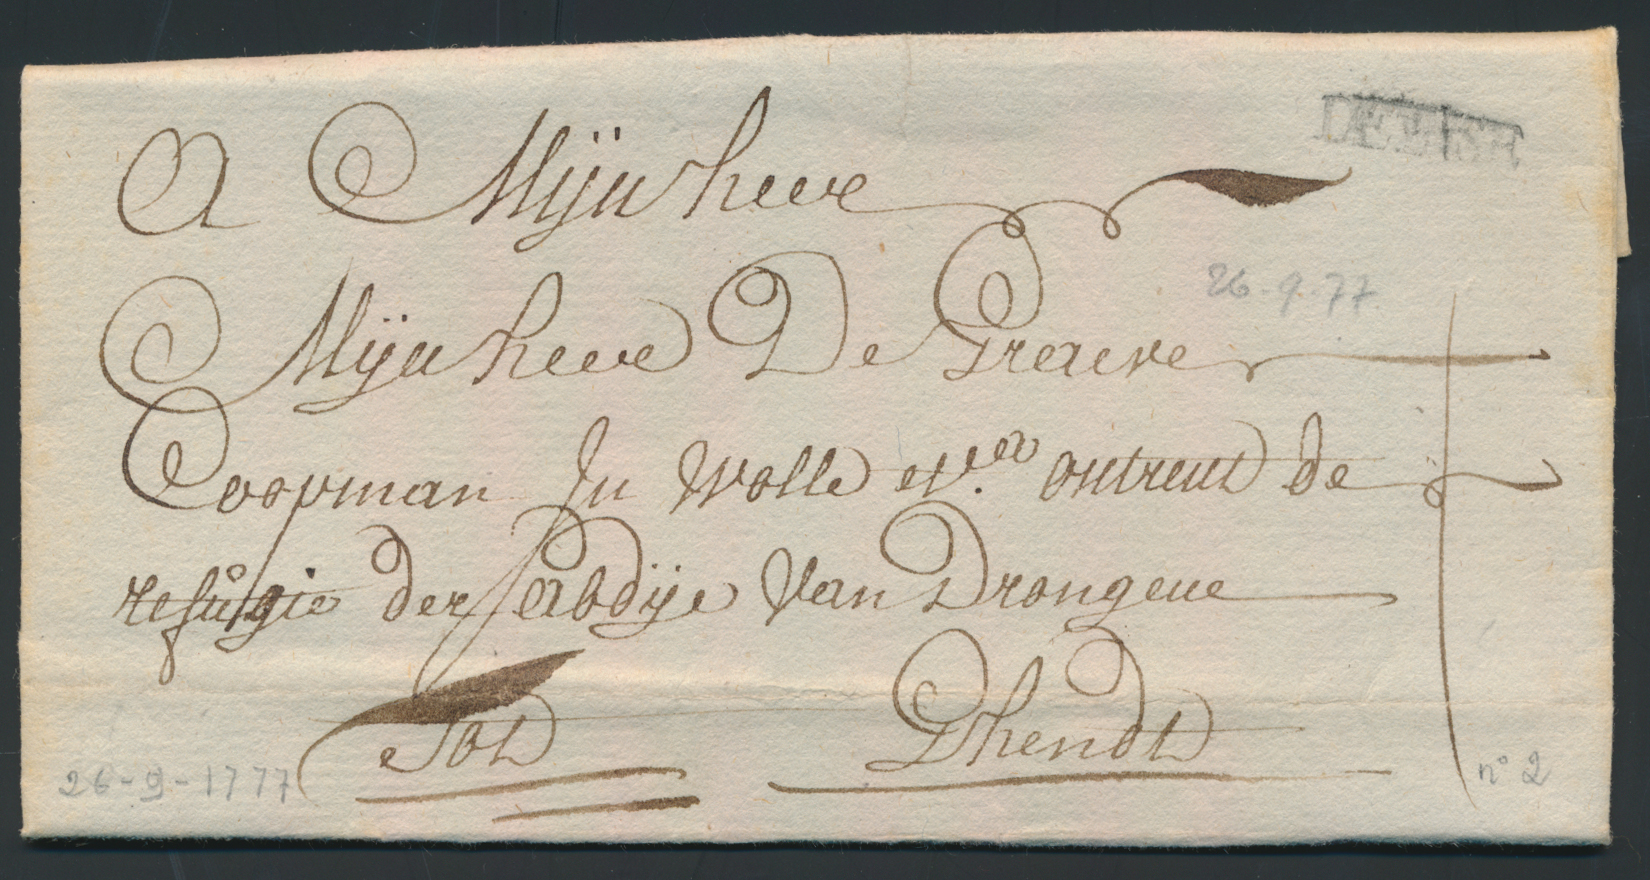 A Mijn heere
26-9-77
Mijn heere De Graeve
Coopman In Wolle etc.ra ontrent de
refúgie der abdije Van Drongene
Tot Ghendt
26-9-1777
n° 2